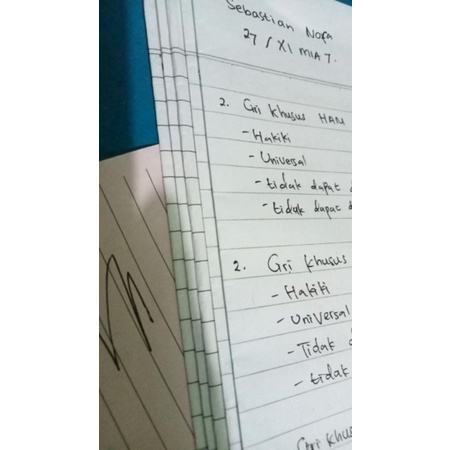 Sebastian Nora
27 / XI MIA 7.
2. Ciri khusus HAM
- Hakiki
- Universal
- tidak dapat
- tidak dapat
2. Ciri khusus
- Hakiki
- Universal
- Tidak
- tidak
Ciri khus